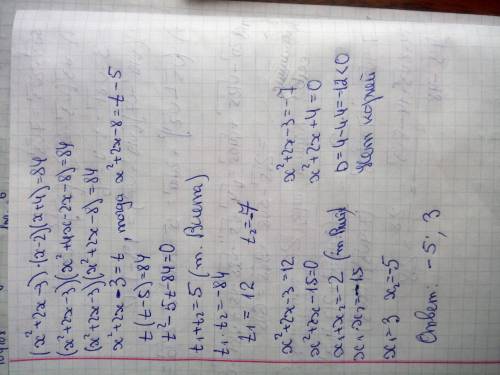 (x²+2x-3)·(x-2)(x+4)=84
(x²+2x-3)(x²+4x-2x-8)=84
(x²+2x-3)(x²+2x-8)=84
x²+2x-3=t, тогда x²+2x-8=t-5
t(t-5)=84
t²-5t-84=0
t₁+t₂=5 (т. Виета)
t₁·t₂=-84
t₁=12 t₂=-7
x²+2x-3=12
x²+2x-15=0
x₁+x₂=-2
x₁·x₂=-15
x₁=3 x₂=-5
x²+2x-3=-7
x²+2x+4=0
D=4-4·4=-12<0
Нет корней
Ответ: -5; 3